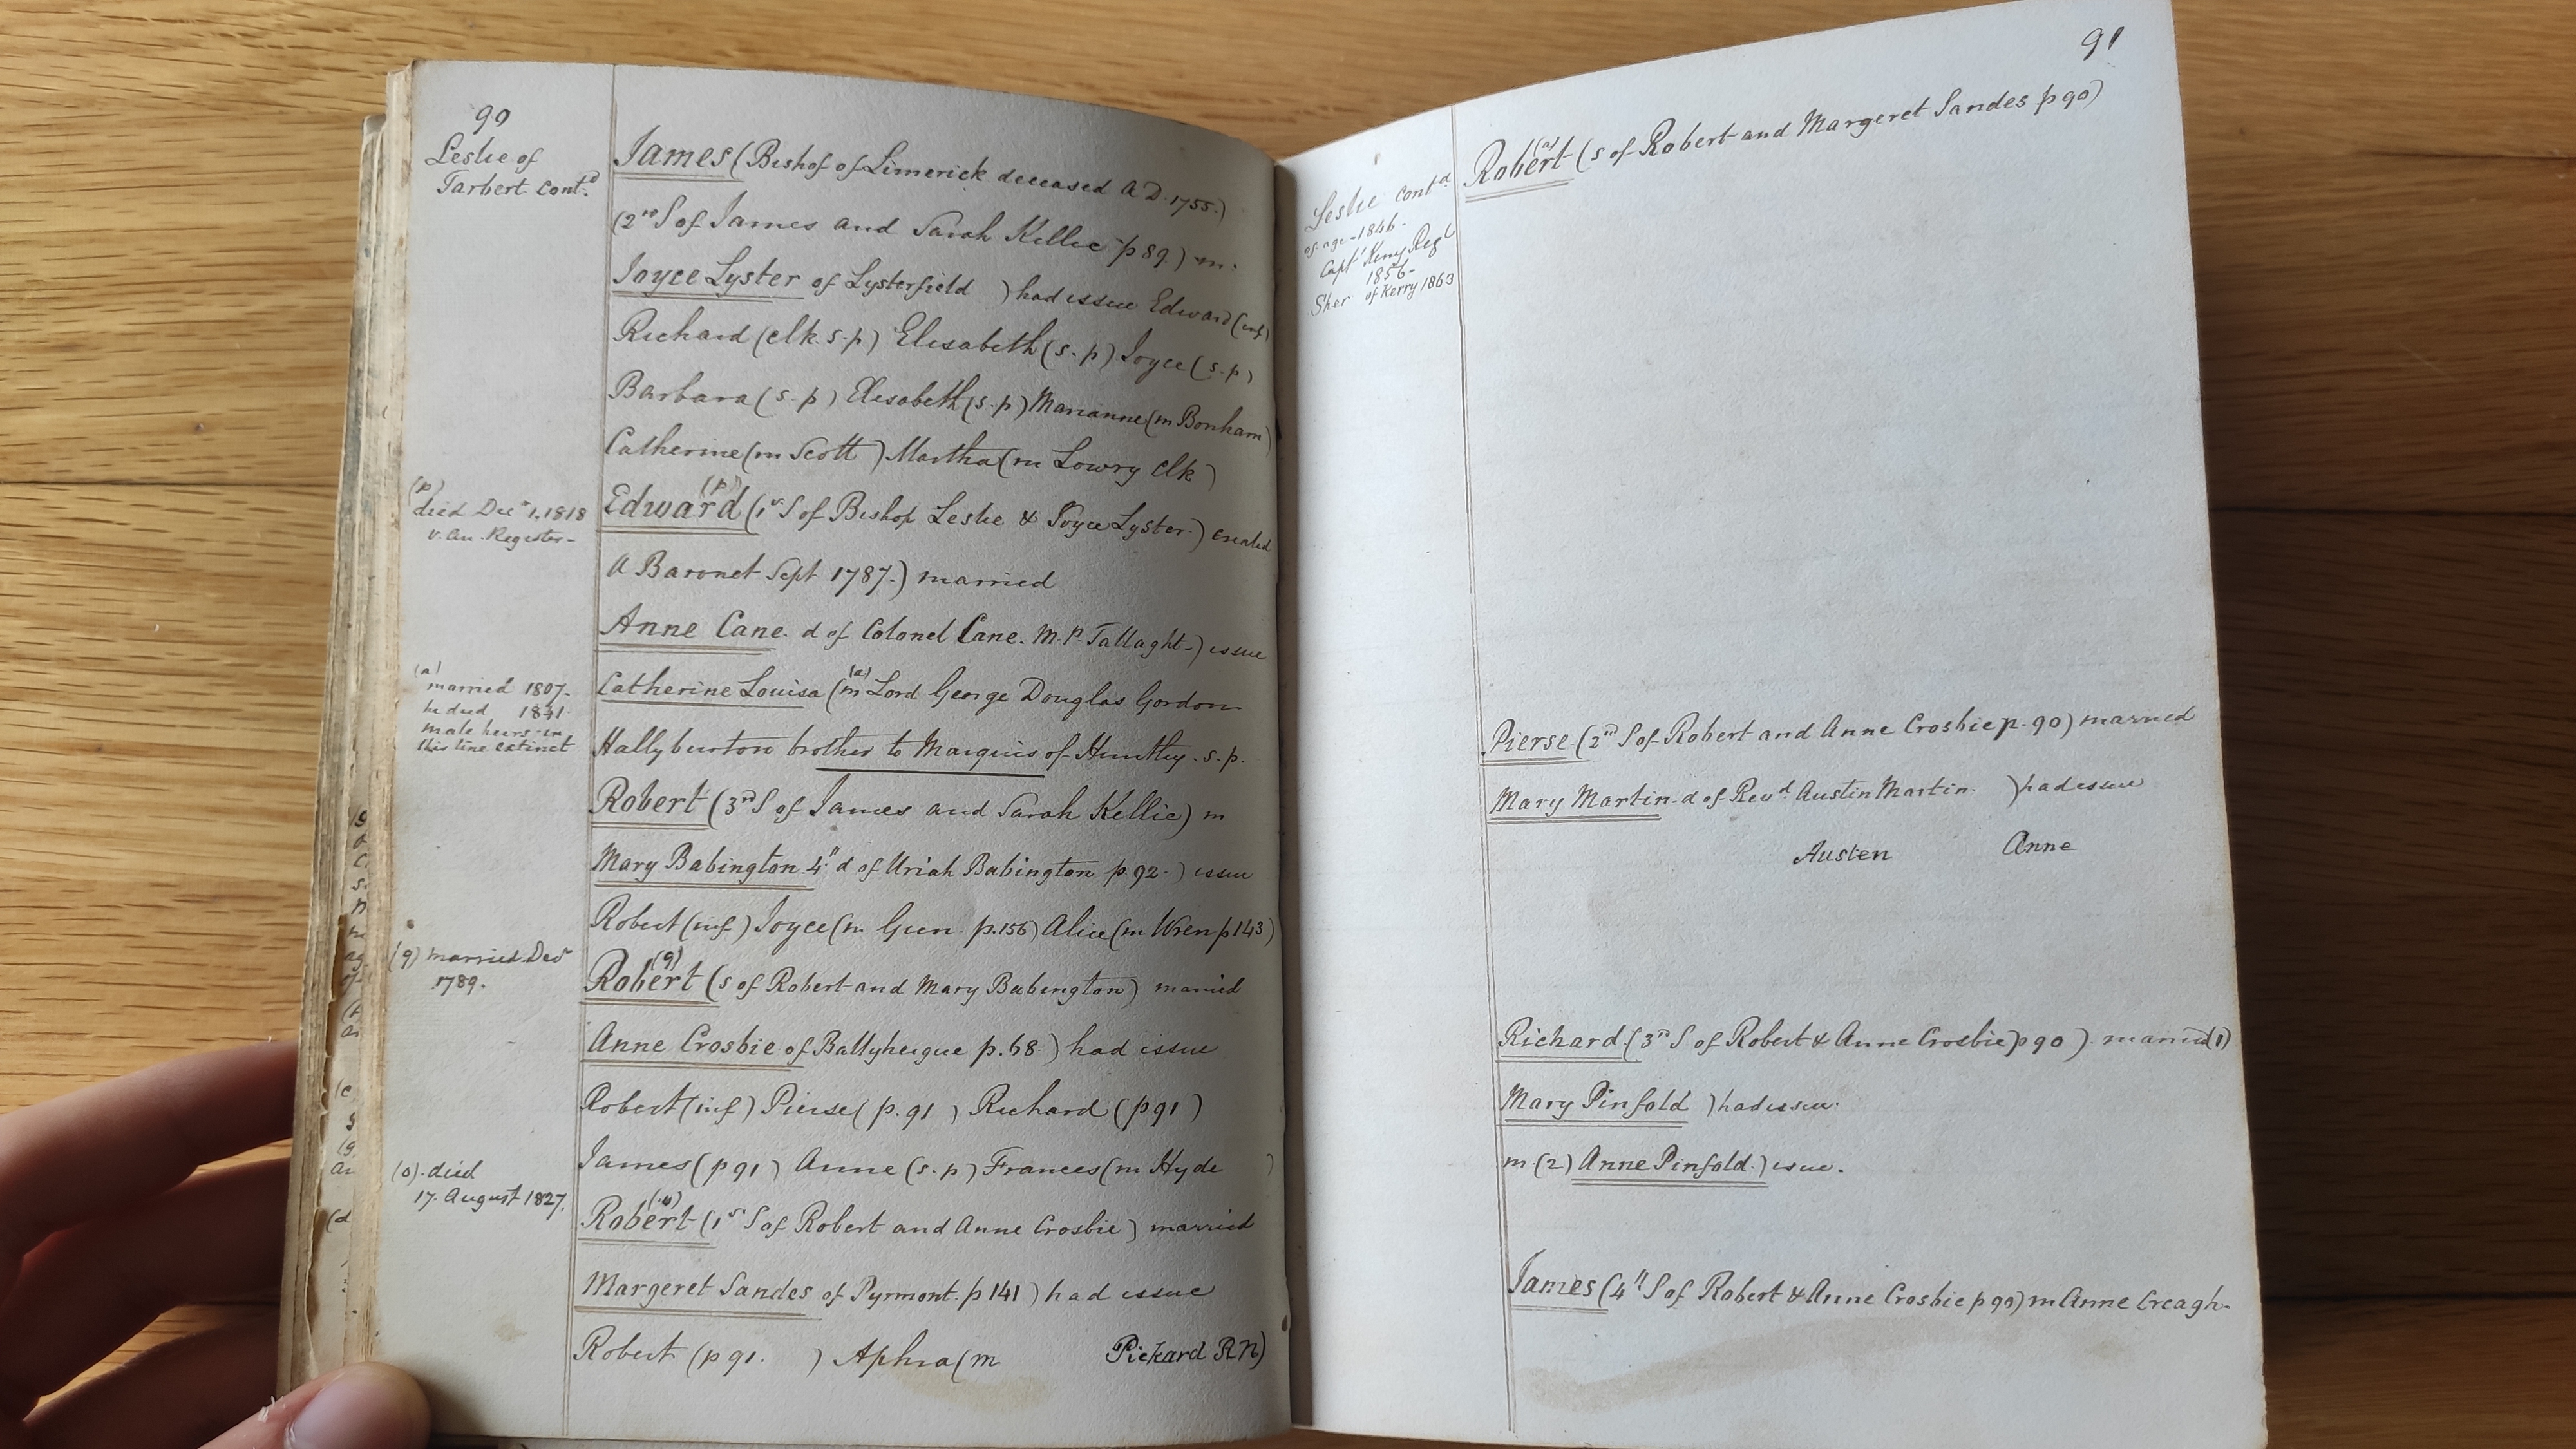 90
Leslie of
Tarbert cont.d
James (Bishop of Limerick deceased A D. 1755.)
(2nd S of James and Sarah Kellie p 89.) m.
Joyce Lyster of Lysterfield ) had issue Edward (inf)
Richard (clk. s.p) Elesabeth (s.p) Joyce (s.p)
Barbara (s.p) Elesabeth (s.p) Marianne (m Bonham)
Catherine (m Scott ) Martha (m Lowry clk)
(p)
died Decr 1, 1818
v. An. Register-
(p)
Edward (1st S of Bishop Leslie & Joyce Lyster.) created
A Baronet Sept 1787.) married
Anne Cane. d of Colonel Cane. M.P. Tallaght-) issue
(a)
married 1807.
he died 1841.
male heirs in
this line extinct
(a)
Catherine Louisa (m Lord George Douglas Gordon
Hallyburton brother to Marquis of Huntley. s.p.
Robert (3rd S of James and Sarah Kellie) m
Mary Babington 4th d of Uriah Babington p. 92.) issue
Robert (inf) Joyce (m. Gun p. 156) Alice (m Wren p 143)
(q) married Decr
1789.
(q)
Robert (s of Robert and Mary Babington) married
Anne Crosbie of Ballyheigue p. 68.) had issue
Robert (inf) Pierse (p. 91 ) Richard (p 91 )
James (p 91 ) Anne (s.p) Frances (m Hyde )
(o). died
17. August 1827.
(o)
Robert (1st S of Robert and Anne Crosbie) married
Margeret Sandes of Pyrmont. p 141 ) had issue
Robert (p 91. ) Aphra (m Pickard RN)
91
Leslie contd
of age - 1846.
Capt Kerry Regt
1856-
Sher of Kerry 1863
(a)
Robert (s of Robert and Margeret Sandes p 90)
Pierse (2nd S of Robert and Anne Crosbie p. 90) married
Mary Martin. d of Revd. Austin Martin. ) had issue
Austen Anne
Richard (3rd S of Robert & Anne Crosbie) p 90 ). married (1)
Mary Pinfold ) had issue.
m (2) Anne Pinfold.) issue.
James (4th S of Robert & Anne Crosbie p 90) m Anne Creagh-